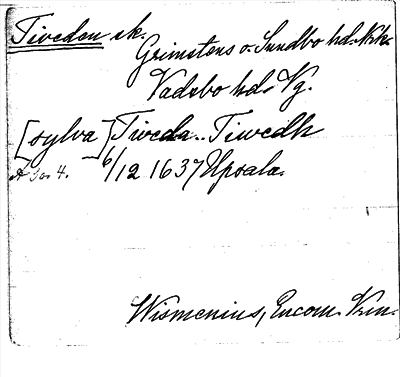 Tiveden sk.
Grimstens o. Sundbo hd. Nke.
Vadsbo hd. Vg.
[sylva] Tiveda.. Tiwedh
6/12 1637 Upsala.
Wismenius, Encom. Krin.